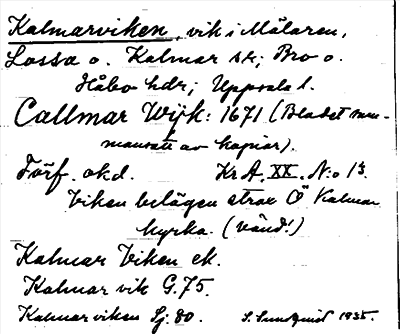 Kalmarviken, vik i Mälaren,
Lossa o. Kalmar sk; Bro o.
Håbo hdr; Uppsala l.
Callmar Wijk: 1671 (Bladet sam-
mansatt av kopior).
Förf. okd. KrA. XX. N:o 13.
Viken belägen strax Ö Kalmar
kyrka. (vänd!)
Kalmar Viken ek.
Kalmar vik G.75.
Kalmarviken Sj. 80. S. Sundqvist 1935.